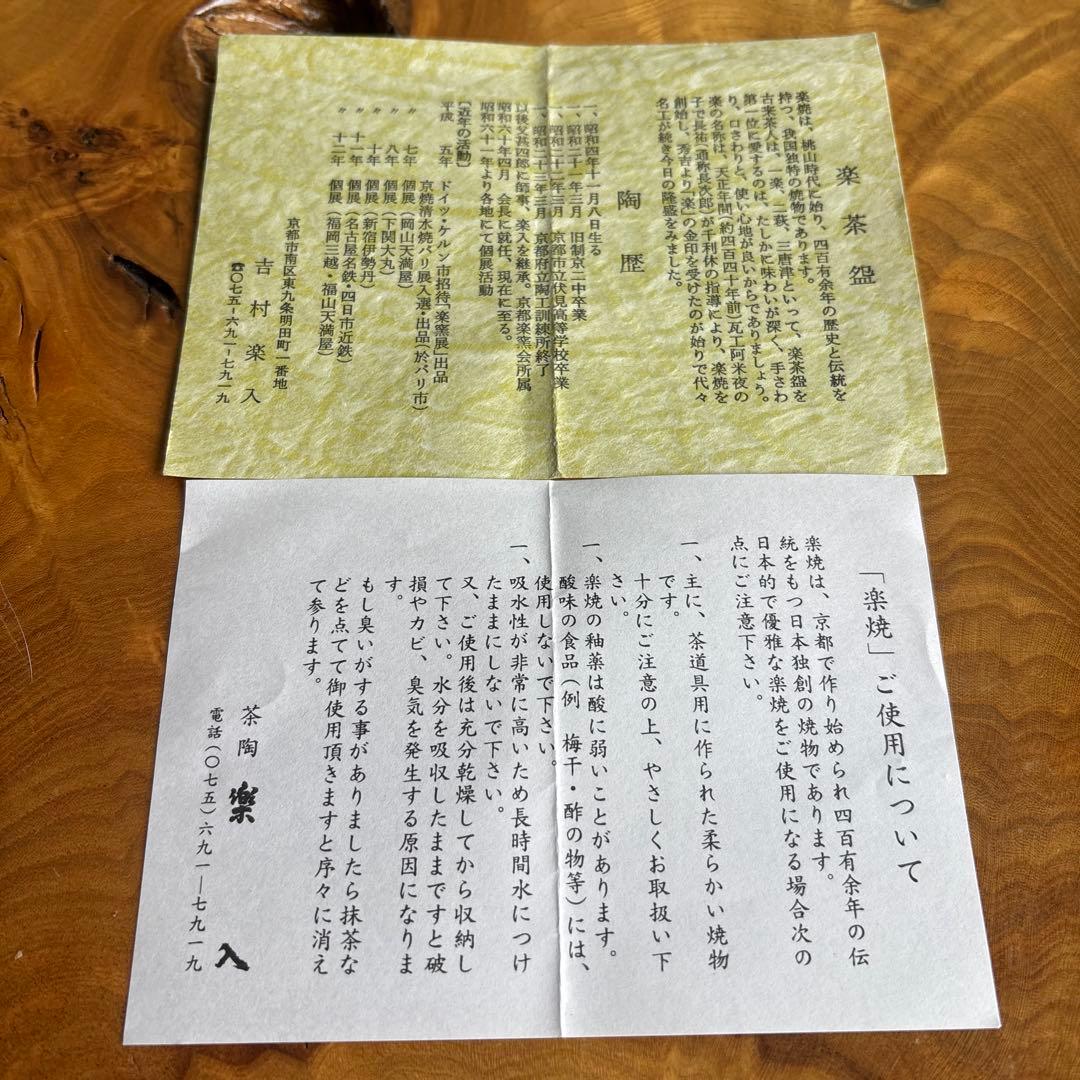 楽茶盌
楽焼は、桃山時代に始り、四百有余年の歴史と伝統を
持つ、我国独特の焼物であります。
古来茶人は、一楽、二萩、三唐津といって、楽茶盌を
第一位に愛するのは、たしかに味わいが深く、手さわ
り、口さわりと、使い心地が良いからでありましょう。
楽の名称は、天正年間(約四百四十年前)瓦工阿米夜の
子で長祐(通称長次郎)が千利休の指導により、楽焼を
創始し、秀吉より「楽」の金印を受けたのが始りで代々
名工が続き今日の隆盛をみました。
陶歴
一、昭和四年十一月八日生る
一、昭和二十一年三月 旧制京二中卒業
一、昭和二十二年三月 京都市立伏見高等学校卒業
一、昭和二十三年三月 京都府立陶工訓練所終了
以後父甚四郎に師事、楽入を継承。京都楽窯会所属
昭和六十年四月 会長に就任、現在に至る。
昭和六十一年より各地にて個展活動
〔近年の活動〕
平成 五年 ドイツ・ケルン市招待「楽窯展」出品
京焼清水焼パリ展入選・出品(於パリ市)
〃 七年 個展(岡山天満屋)
〃 八年 個展(下関大丸)
〃 十年 個展(新宿伊勢丹)
〃 十一年 個展(名古屋名鉄・四日市近鉄)
〃 十二年 個展(福岡三越・福山天満屋)
京都市南区東九条明田町一番地
吉村楽入
☎〇七五-六九一-七九一九
「楽焼」ご使用について
楽焼は、京都で作り始められ四百有余年の伝
統をもつ日本独創の焼物であります。
日本的で優雅な楽焼をご使用になる場合次の
点にご注意下さい。
一、主に、茶道具用に作られた柔らかい焼物
です。
十分にご注意の上、やさしくお取扱い下
さい。
一、楽焼の釉薬は酸に弱いことがあります。
酸味の食品(例 梅干・酢の物等)には、
使用しないで下さい。
一、吸水性が非常に高いため長時間水につけ
たままにしないで下さい。
又、ご使用後は充分乾燥してから収納し
て下さい。水分を吸収したままですと破
損やカビ、臭気を発生する原因になりま
す。
もし臭いがする事がありましたら抹茶な
どを点てて御使用頂きますと序々に消え
て参ります。
茶陶 樂入
電話(〇七五)六九一―七九一九